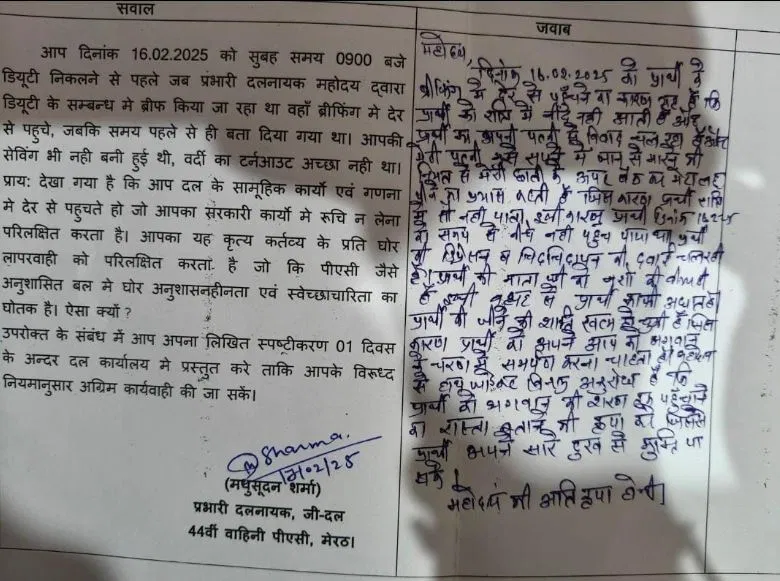 सवाल
आप दिनांक 16.02.2025 को सुबह समय 0900 बजे
डियूटी निकलने से पहले जब प्रभारी दलनायक महोदय द्वारा
डियूटी के सम्बन्ध मे ब्रीफ किया जा रहा था वहाँ ब्रीफिंग मे देर
से पहुचे, जबकि समय पहले से ही बता दिया गया था। आपकी
सेविंग भी नही बनी हुई थी, वर्दी का टर्नआउट अच्छा नही था।
प्राय: देखा गया है कि आप दल के सामूहिक कार्यो एवं गणना
मे देर से पहुचते हो जो आपका सरकारी कार्यो मे रूचि न लेना
परिलक्षित करता है। आपका यह कृत्य कर्तव्य के प्रति घोर
लापरवाही को परिलक्षित करता है जो कि पीएसी जैसे
अनुशासित बल मे घोर अनुशासनहीनता एवं स्वेच्छाचारिता का
घोतक है। ऐसा क्यों ?
उपरोक्त के संबंध में आप अपना लिखित स्पष्टीकरण 01 दिवस
के अन्दर दल कार्यालय मे प्रस्तुत करे ताकि आपके विरूध्द
नियमानुसार अग्रिम कार्यवाही की जा सकें।
Sharma
(मधुसूदन शर्मा)
प्रभारी दलनायक, जी-दल
44वीं वाहिनी पीएसी, मेरठ।
जवाब
महोदय,
दिनांक 16.02.2025 को प्रार्थी के
ब्रीफिंग मे देर से पहुंचने का कारण यह है कि
प्रार्थी को रात्रि में नींद नही आती है और
प्रार्थी का अपनी पत्नी से विवाद चल रहा है और
मेरी पत्नी मुझे सपने मे जान से मारने की
नियत से मेरी छाती के ऊपर बैठ कर मेरा लहू
पीने का प्रयास करती है जिस कारण प्रार्थी रात्रि
मे सो नहीं पाता, इसी कारण प्रार्थी दिनांक 16-2-25
को समय से नीचे नहीं पहुच पाया था प्रार्थी
की डिप्रेशन व चिडचिडापन की दवाई चल रही
है। प्रार्थी की माता जी को नशो की बीमारी
है इसकी वजह से प्रार्थी काफी
प्रार्थी की जीने की खत्म हो चुकी है जिस
कारण प्रार्थी को अपने आप को भगवान
के चरणों में समर्पण करना चाहता है
अनुरोध है कि
प्रार्थी को भगवान की शरण पहुचाने
का रास्ता बताने की कृपा करे जिससे
प्रार्थी अपने सारे दुख से मुक्ति पा
सके।
महोदय की अति कृपा होगी।